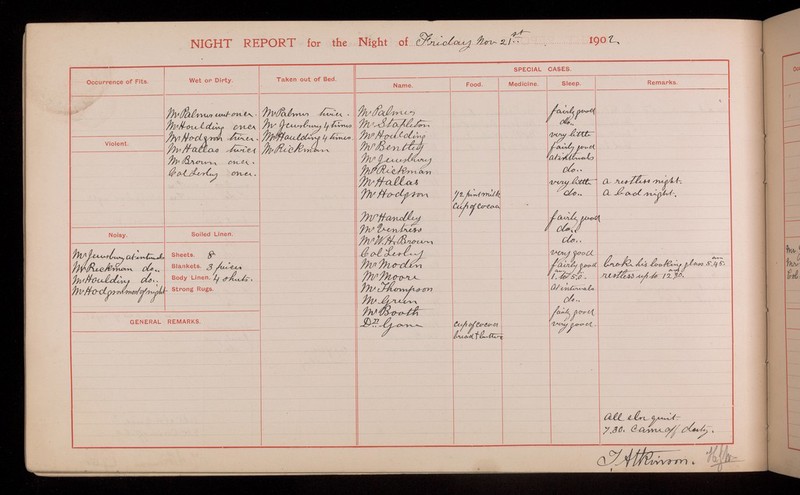 NIGHT REPORT for the Night of Friday Nov 21st 1902.
SPECIAL CASES.
Occurrence of Fits.
Wet or Dirty.
Taken out of Bed.
Name.
Food.
Medicine.
Sleep.
Remarks.
Mr Palmer wet once.
Mr Houlding once
Mr Hodgson twice.
Mr Hallas twice
Mr Brown once.
Col Lesley once.
Violent.
Noisy.
Mr Jewsbury at intervals
Mr Rickman do..
Mr Houlding do..
Mr Hodgson most of night
Soiled Linen.
Sheets. 8
Blankets. 3 pieces
Body Linen. 4 shirts.
Strong Rugs.
GENERAL REMARKS.
Mr Palmer twice.
Mr Jewsbury 4 times
Mr Houlding 4 times.
Mr Rickman
Mr Palmer fairly good
Mr Stapleton do..
Mr Houlding very little
Mr Bentley fairly good
Mr Jewsbury at intervals
Mr Rickman do..
Mr Hallas very little a restless night.
Mr Hodgson 1/2 pint milk do.. a bad night.
Cup of cocoa
Mr Handley fairly good
Mr Ventress do..
Mr W. H. Brown do..
Col Lesley very good
Mr Moden fairly good broke his looking glass 5.45
Mr Moore restless up to 12.30.
Mr Thompson at intervals
Mr Green do..
Mr Booth fairly good
Dr Gane Cup of cocoa very good
bread & butter
All else quiet.
7.30. Came off duty.
T. Atkinson.